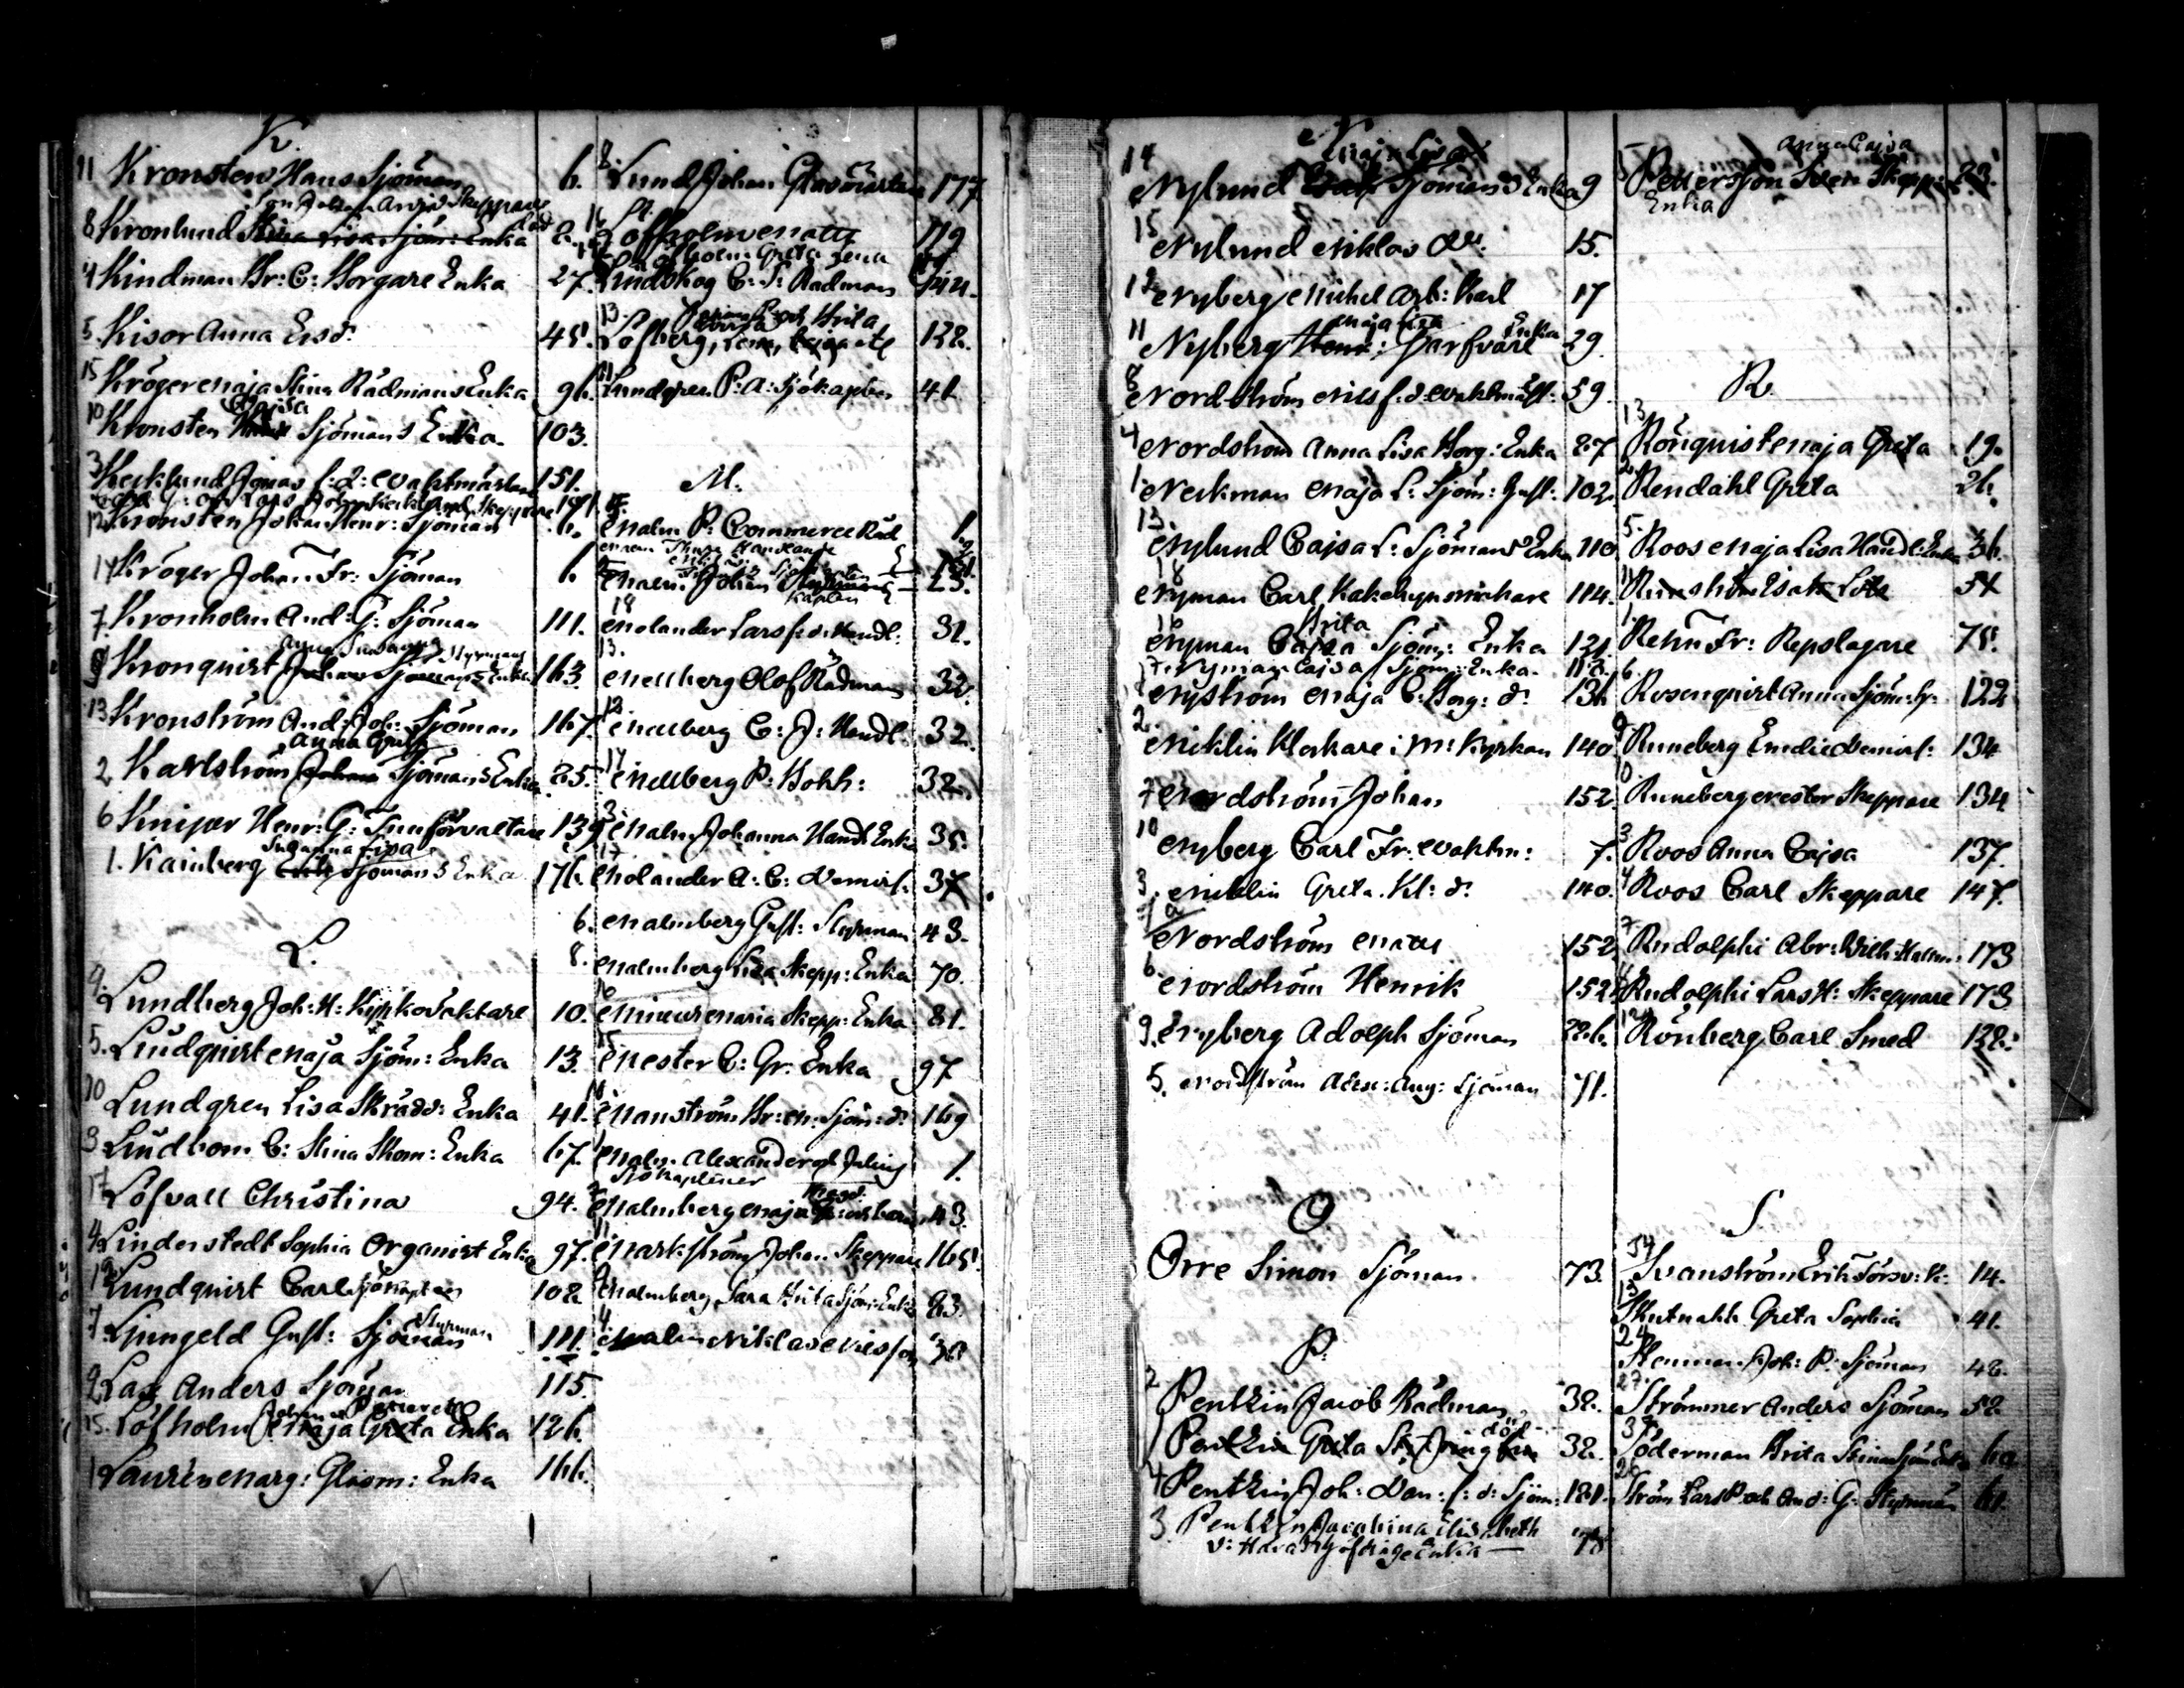 K.
11 Kronsten Hans Sjöman 6.
Son Johan Arvid Skeppare
8 Kronlund Stina Lisa Sjöm: Enka 2.
4 Kindman Br: C: Borgare Enka 27.
5. Kisor Anna Ersd: 45.
15 Kröger Maja Stina Rådmans Enka 96.
Cajsa
10 Kronsten Sjömans Enka 103.
3 Kecklund Jonas f. d. Vaktmästare 151.
12 Kronsten Johan Henr: Sjöman 6.
14 Kröger Johan Fr: Sjöman 6
7. Kronholm And: G: Sjöman 111.
Anna Susanna Styrmans
9 Kronquist Johan Sjömans Enka 163
13 Kronström And: Joh: Sjöman 167.
Anna Greta
2 Karlström Johan Sjömans Enka 25.
6 Knijper Henr: G: Förvaltare 139
Susanna Lisa
1. Kainberg Erik Sjömans Enka 176.
L.
9. Lundberg Joh: H: Kyrkovaktare 10.
5. Lindquist Maja Sjöm: Enka 13.
10 Lundgren Lisa Skrädd: Enka 41.
3 Lindbom C: Stina Skom: Enka 67.
17 Löfvall Christina 94.
4 Linderstedt Sophia Organist Enka 97.
12 Lundquist Carl Sjökapten 102
Styrman
7 Ljungeld Gust: Sjöman 111.
2 Lax Anders Sjöman 115.
15. Löfholm Maja Greta Enka 126.
1 Laurén Marg: Glasm: Enka 166.
8. Lund Johan Glasmästare 177
16 Löfholm Matts 119
Löfholm Greta Lena
Lindskog C: J: Rådman 144.
13. Brita
Löfberg, Lena, Cajsa 132.
11 Lundgren P: A: Sjökapten 41
M.
Malm P: Commerce Råd 1.
Malm Johan 23.
Kapten
18 Molander Lars f: d: Handl: 31.
13. Mellberg Olof Rådman 32.
12. Mellberg C: J: Handl. 32.
14 Mellberg P: Bokh: 32.
3 Malm Johanna Handl Enka 35.
17 Molander A: C: Demois: 37
6. Malmberg Gust: Styrman 43.
8. Malmberg Lisa Skepp: Enka 70.
16 Mineur Maria Skepp: Enka 81.
15 Mester C: Gr. Enka 97
10 Manström Br: M: Sjöm: d: 169
Malm Alexander och Julius 1.
Sjökaptener
Malmberg Maja 43.
11 Markström Johan Skeppare 165.
9 Malmberg Sara Brita Sjöm: Enka 83.
4 Malm Niklas Nilsson 38
N
Maja Lisa
14 Nylund Isak Sjömans Enka 9
15 Nylund Niklas 15.
12 Nyberg Michel Arb: Karl 17
Maja Lisa Enka
11 Nyberg Henr: Garfvare 29.
8 Nordström Nils f. d. Vaktmäst: 59.
4 Nordström Anna Lisa Borg: Enka 87
1. Neckman Maja L: Sjöm: Gust: 102.
13. Nylund Cajsa L: Sjömans Enka 110.
18 Nyman Carl Kakelugnmakare 114.
Brita
16 Nyman Cajsa Sjöm: Enka 121
17. Nyman Cajsa Sjöm: Enka. 118.
Nyström Maja C: Borg: d: 136
2. Nicklin Klockare i M: Kyrkan 140
7 Nordström Johan 152
10 Nyberg Carl Fr: Vaktm: 7.
3. Nicklin Greta. Kl: d: 140.
Nordström Matts 152
6. Nordström Henrik 152
9. Nyberg Adolph Sjöman 226.
5. Nordström Alex: Aug: Sjöman 71.
O
Orre Simon Sjöman 73.
P.
2 Pentzin Jacob Rådman 32.
död
1 Pentzin Greta 32.
4 Pentzin Joh: Dan: f: d: Sjöm: 121.
3 Pentzin Jacobina Elisabeth
v: Häradshöfdinge Enka — 78
Anna Cajsa
5 Pettersson Sven Skepp: 23.
Enka
R.
13 Rönquist Maja Greta 19.
2. Rendahl Greta 26.
5. Roos Maja Lisa Handl: Enka 36.
11 Isak 54
1. Rehn Fr: Repslagare 75.
6. Rosenquist Anna Sjöm: h: 122
9 Runeberg Emilie Demois: 134
Runeberg Nestor Skeppare 134
3. Roos Anna Cajsa 137.
4 Roos Carl Skeppare 147.
7 Rudolphi Abr: Wilh: 173
8 Rudolphi Lars H: Skeppare 173
12 Rönberg Carl Smed 132.
S
34 Svanström Erik Försv: K: 14.
13 Skutnabb Greta Sophia 41.
24 Stenman Joh: P: Sjöman 48.
27. Strömmer Anders Sjöman 52.
37 Söderman Brita Stina Sjöm Enka 60
26 Ström Lars P. och And: G: Styrmän 61.